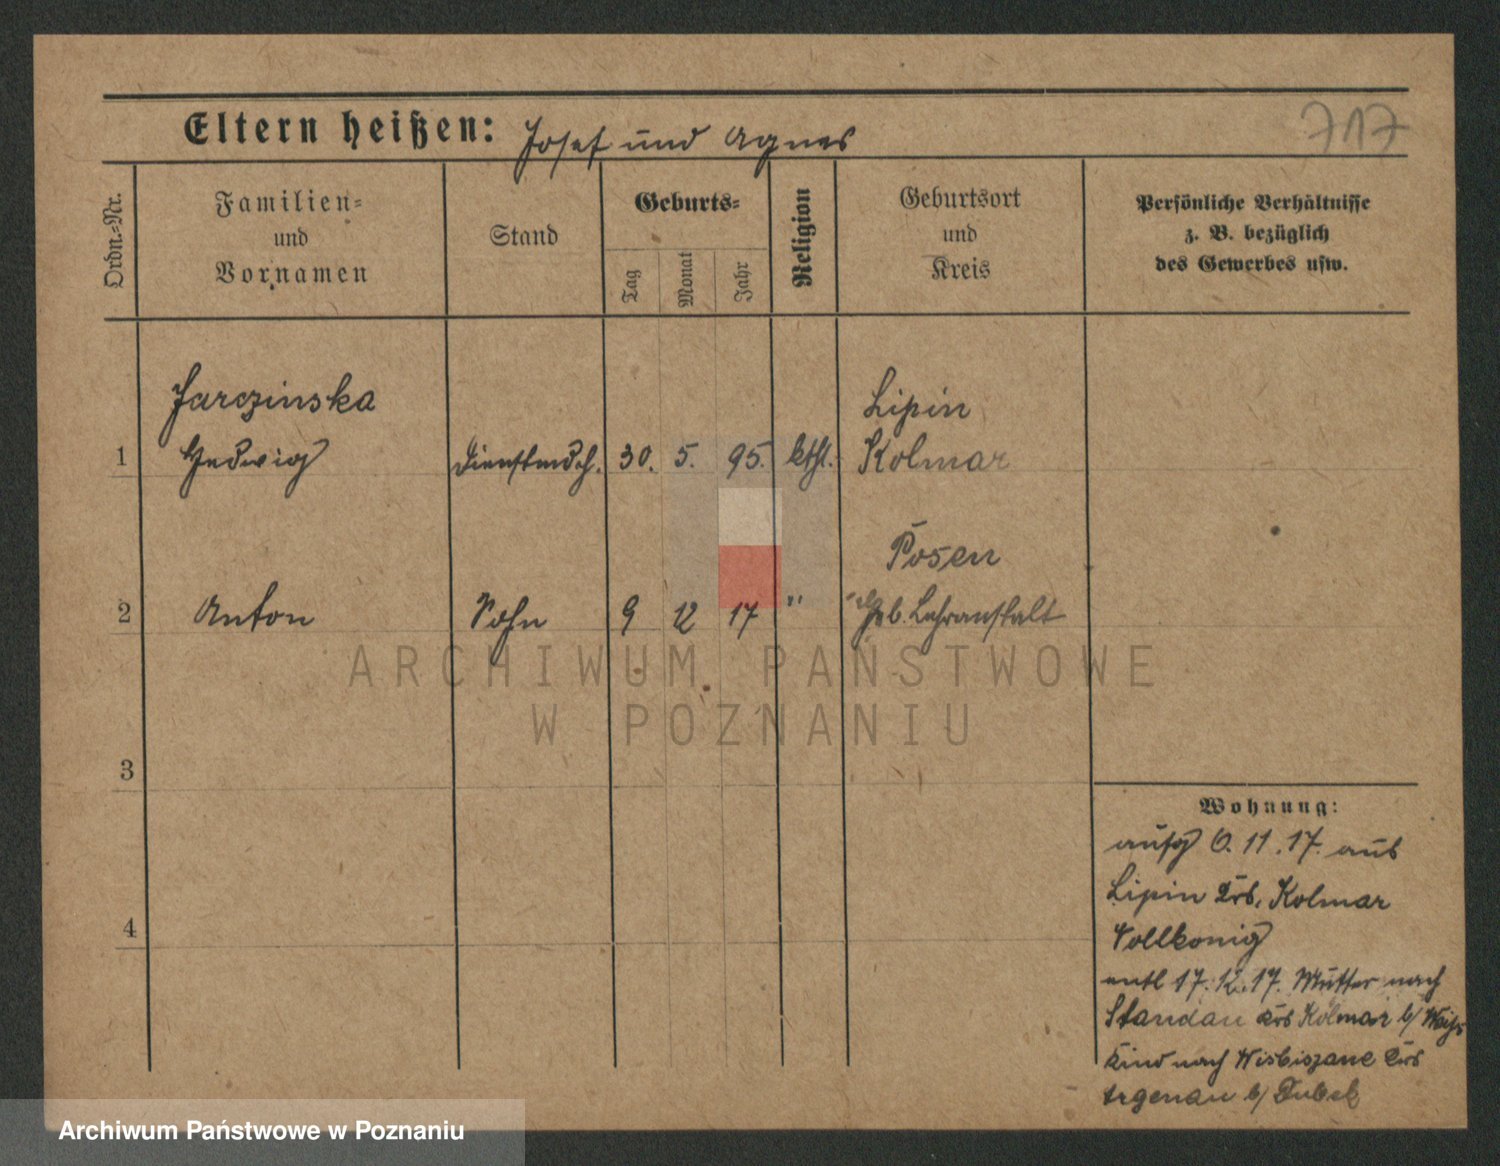 Eltern heißen: Josef und Agnes
717
Ordn.-Nr.
Familien-
und
Vornamen
Stand
Geburts-
Tag
Monat
Jahr
Religion
Geburtsort
und
Kreis
Persönliche Verhältnisse
z. B. bezüglich
des Gewerbes usw.
Jarczinska
Lipin
1 Hedwig Dienstmdch. 30. 5. 95. kthl. Kolmar
Posen
2 Anton Sohn 9 12 17 " Heb. Lehranstalt
ARCHIWUM PAŃSTWOWE
W POZNANIU
3
4
Wohnung:
aufg 6. 11. 17. aus
Lipin Krs. Kolmar
entl 17. 12. 17. Mutter nach
Standau Krs Kolmar b/
Kind nach Krs
Argenau b/
Archiwum Państwowe w Poznaniu